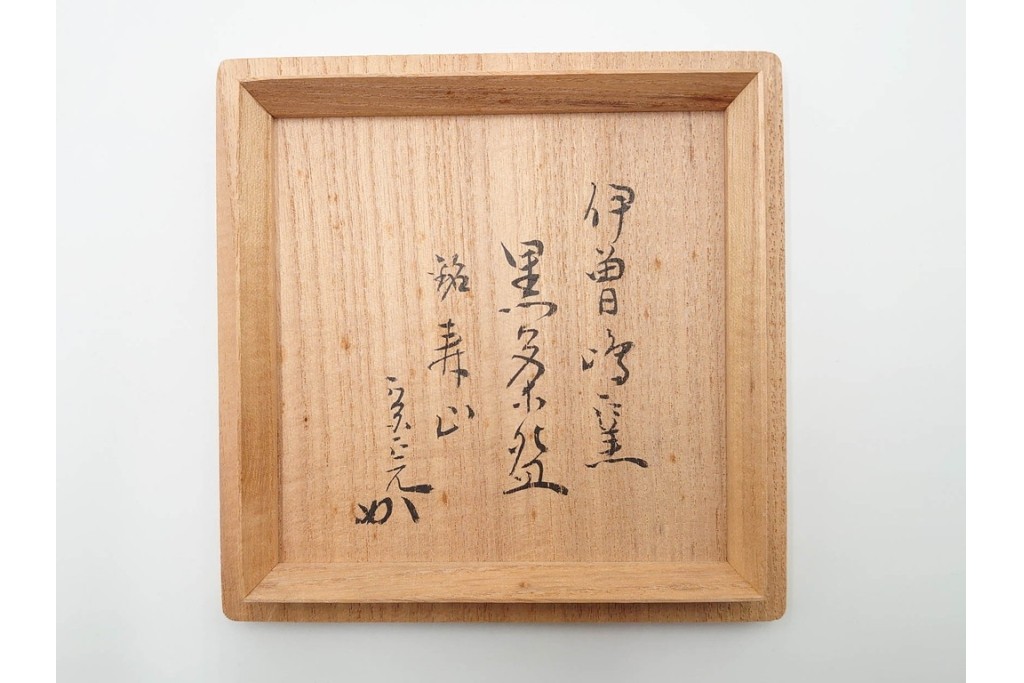 伊曽嶋窯
黒茶盌
銘 寿山